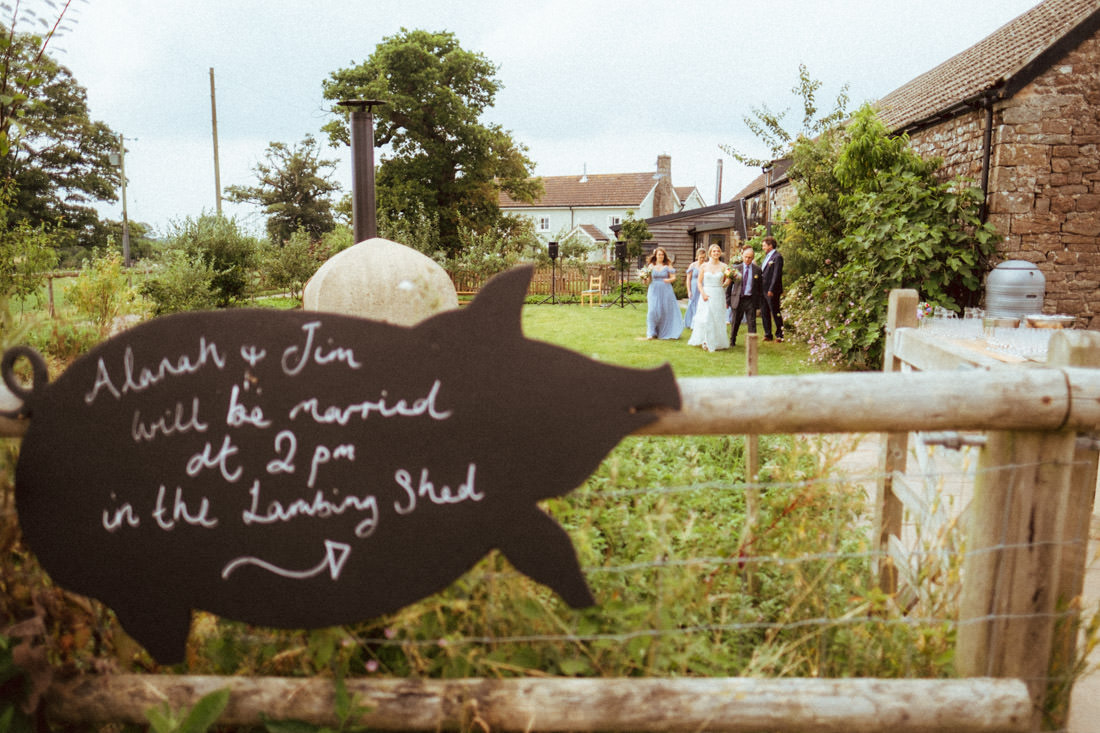 Alanah + Jim
will be married
at 2pm
in the Lambing Shed